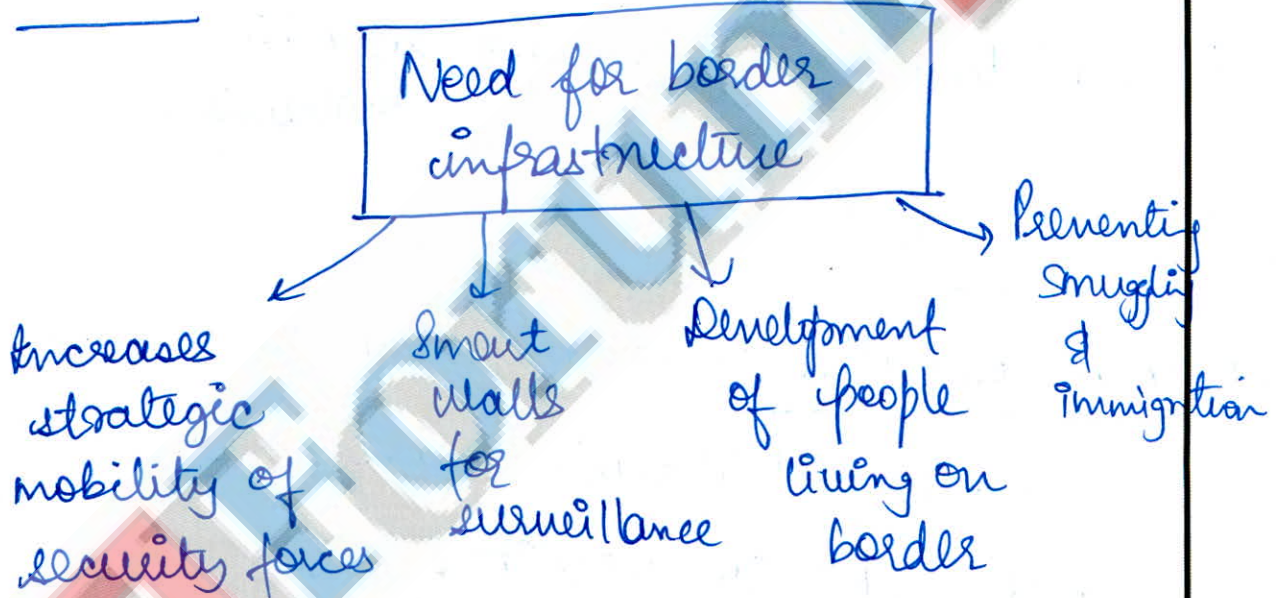 Need for border
infrastructure
Increases
strategic
mobility of
security forces
Smart
walls
for
surveillance
Development
of people
living on
border
Preventing
smuggling
&
immigration
Forum